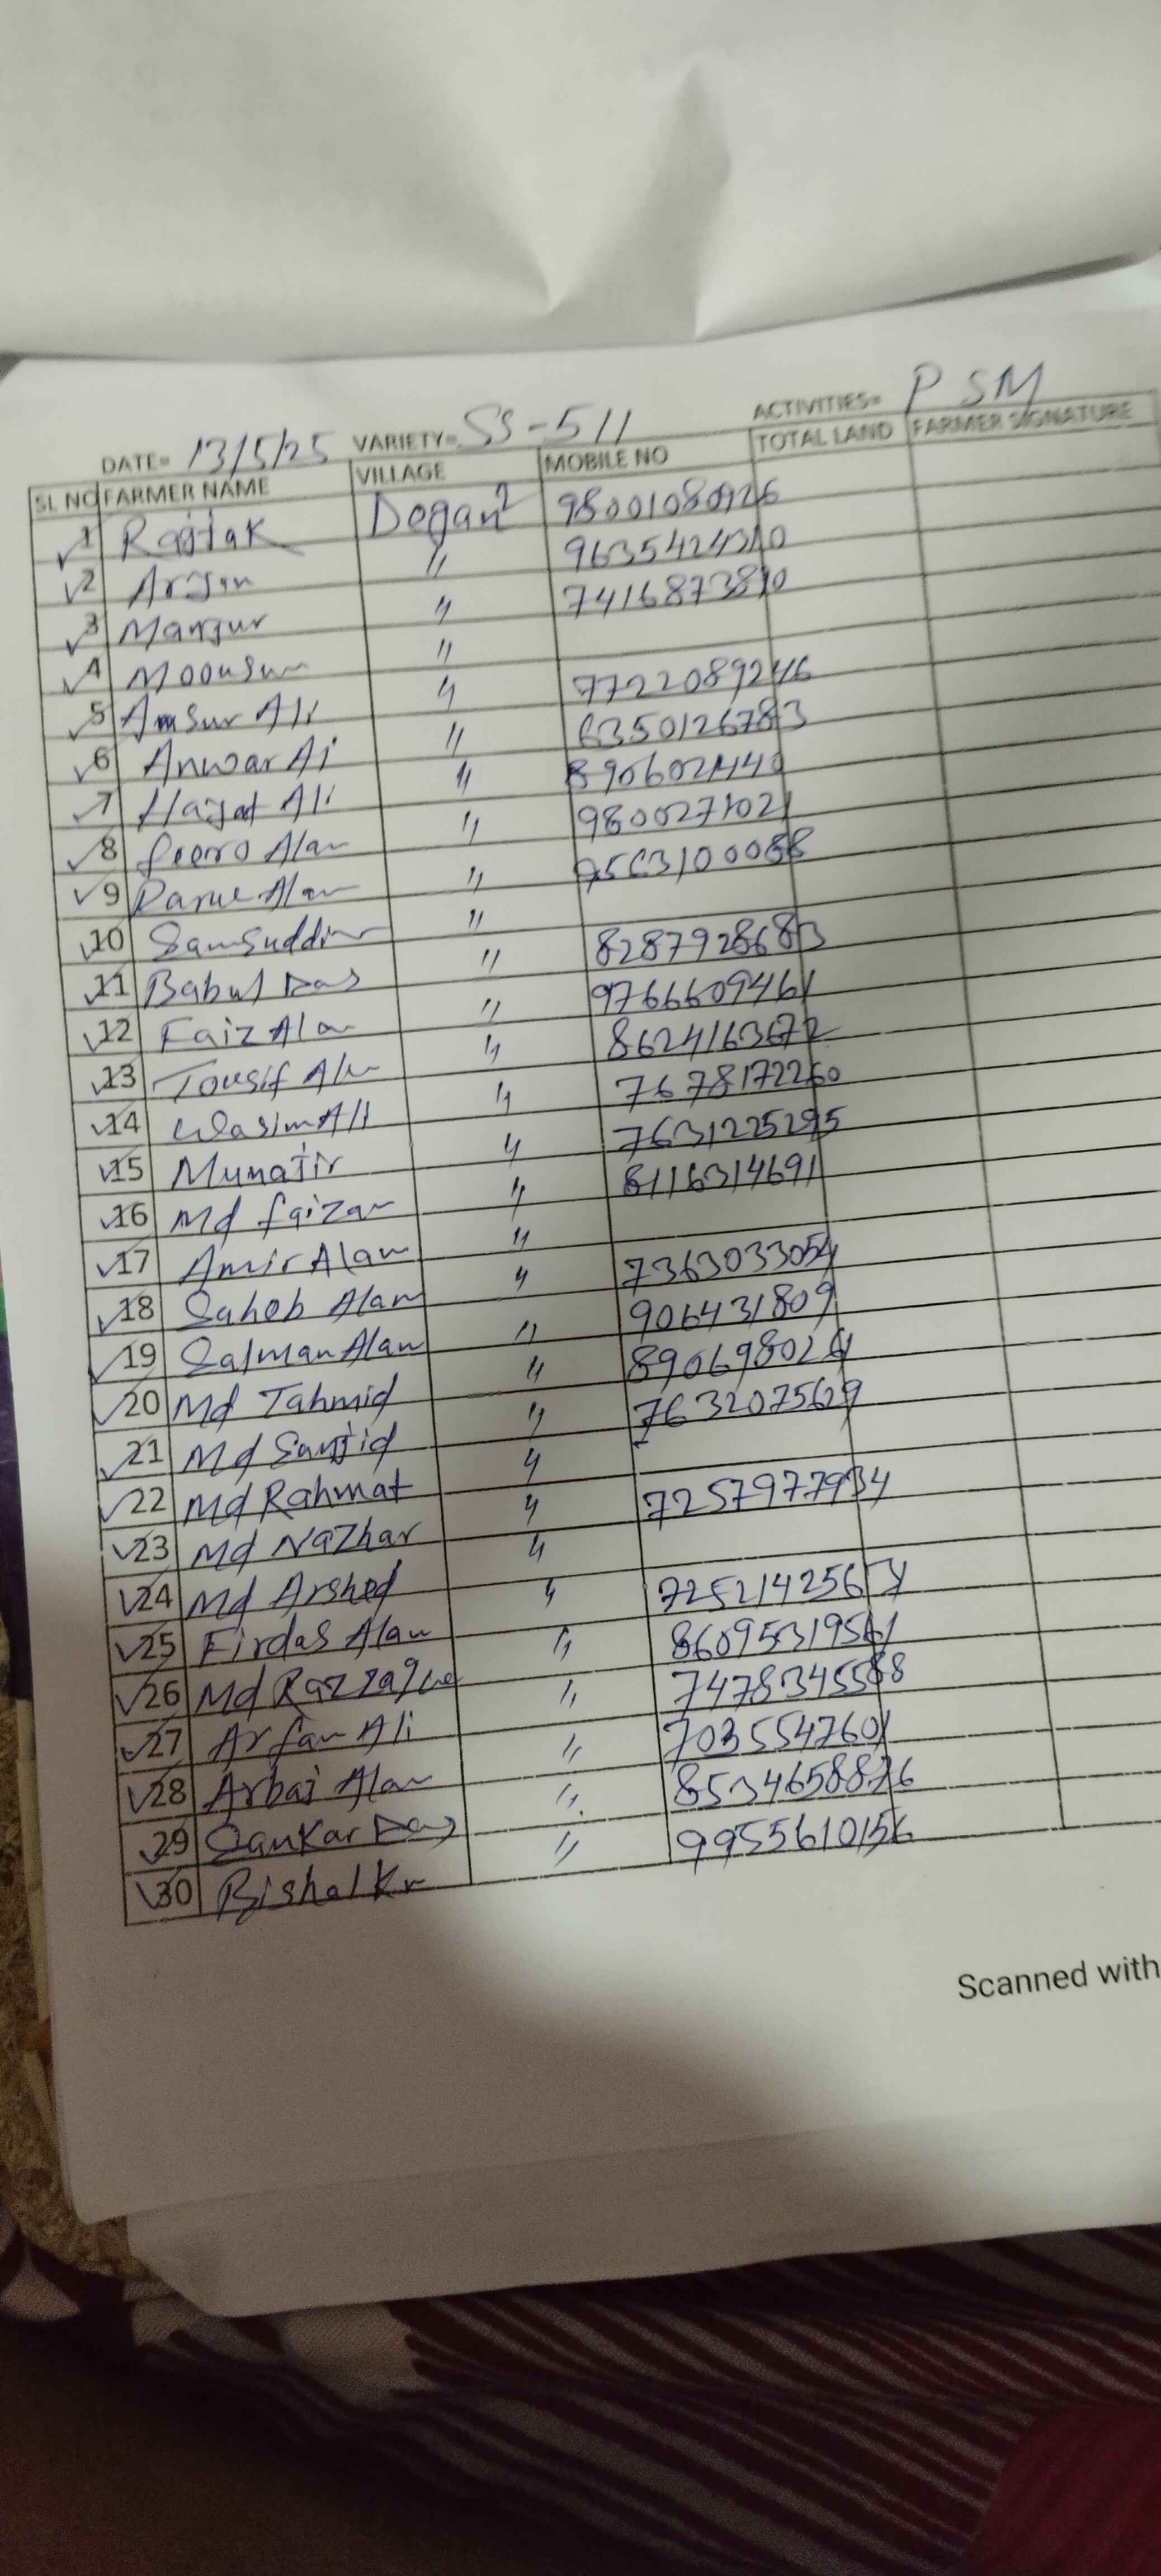 ACTIVITIES= PSM
DATE= 13/5/25 VARIETY= SS-511
SL NO FARMER NAME VILLAGE MOBILE NO TOTAL LAND FARMER SIGNATURE
1 Rajjak 98001080926
2 " 9635424310
3 Manjur " 7416873810
4 "
5 Amsur Ali " 7722089246
6 Anwar Ai " 6350126783
7 Hayat Ali "
8 Alam " 9800271021
9 Alam "
10 Samsuddin "
11 Babul Das " 8287928683
12 Faiz Alam " 9766609461
13 Tousif Alm " 8624163672
14 Wasim Ali " 7678172260
15 Munajir " 7631225295
16 Md faizan " 8116314691
17 Amir Alam "
18 Saheb Alam " 7363033054
19 Salman Alam " 906431809
20 Md Tahmid "
21 Md Sanjid " 7632075629
22 Md Rahmat "
23 Md Nazhar " 7257977934
24 Md Arshed "
25 Firdas Alam "
26 Md Razzaque " 8609531951
27 Arfan Ali " 7478345588
28 Arbaj Alam " 7035547601
29 Sankar Das " 8534658876
30 Bishal Kr " 9955610156
Scanned with